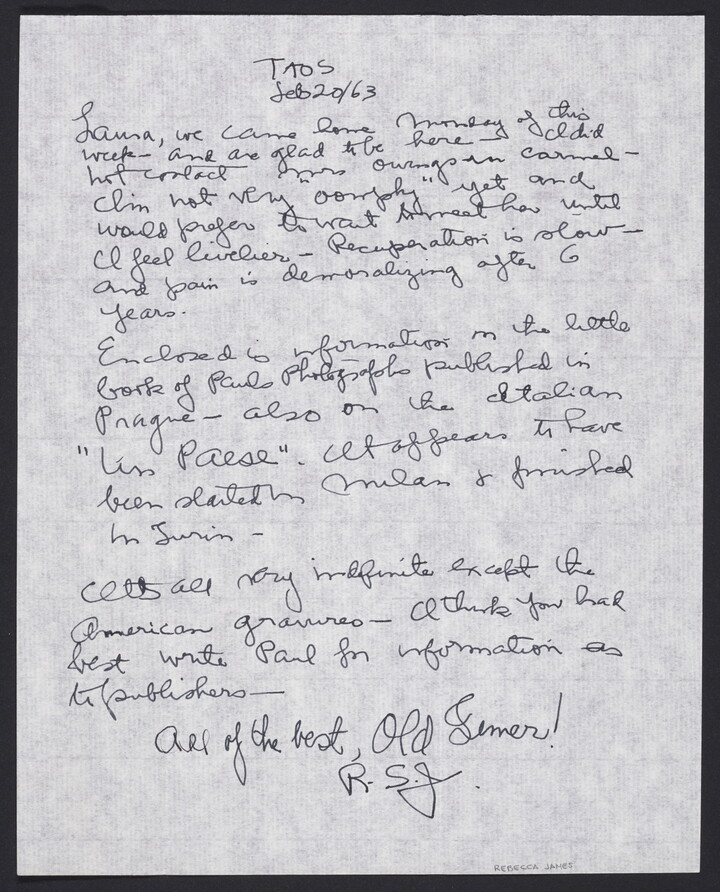 TAOS
Feb 20/63
Laura, we came home Monday of this
week – and are glad to be here – I did
not contact Mrs Owings in Carmel –
I'm not very "oomphy" yet and
would prefer to wait to meet her until
I feel livelier – Recuperation is slow –
and pain is demoralizing after 6
years.
Enclosed is information on the little
book of Pauls Photographs published in
Prague – also on the Italian
"Un Paese". It appears to have
been started in Milan & finished
in Turin –
Its all very indefinite except the
American gravures – I think you had
best write Paul for information as
to publishers –
All of the best, Old Timer!
R.S.J.
REBECCA JAMES